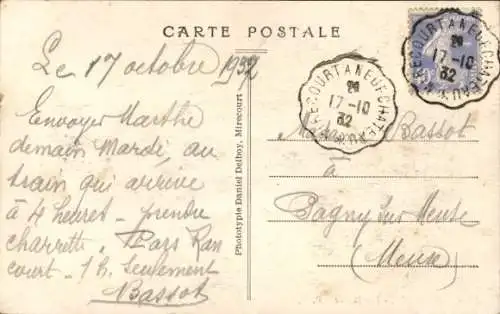 CARTE POSTALE
Le 17 octobre 1932
Envoyer Marthe
demain Mardi, au
train qui arrive
à 4 heures - prendre
charrette.
court - 1 h. seulement
Bassot
Phototypie Daniel Delboy, Mirecourt
MIRECOURT A NEUFCHATEAU
17-10
32
MIRECOURT A NEUFCHATEAU
17-10
32
Bassot
à
Pagny sur Meuse
(Meuse)